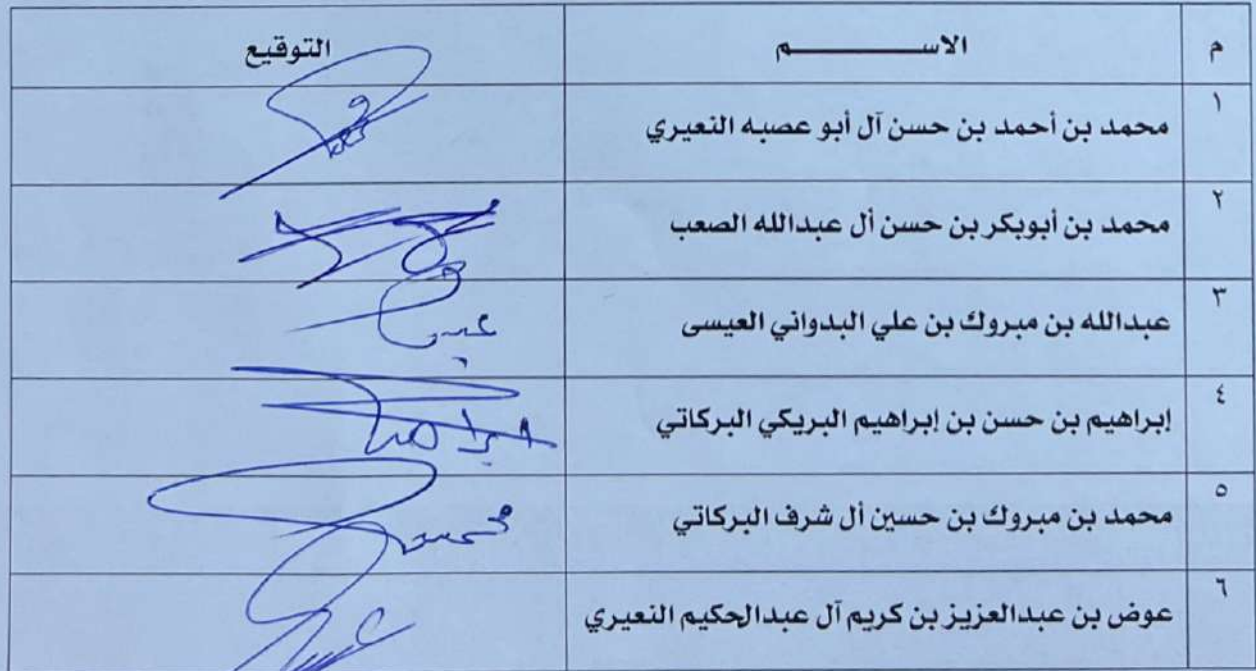 م الاســـــــــم التوقيع
١ محمد بن أحمد بن حسن آل أبو عصبه النعيري
٢ محمد بن أبوبكر بن حسن أل عبدالله الصعب
٣ عبدالله بن مبروك بن علي البدواني العيسى
٤ إبراهيم بن حسن بن إبراهيم البريكي البركاتي
٥ محمد بن مبروك بن حسين أل شرف البركاتي
٦ عوض بن عبدالعزيز بن كريم آل عبدالحكيم النعيري